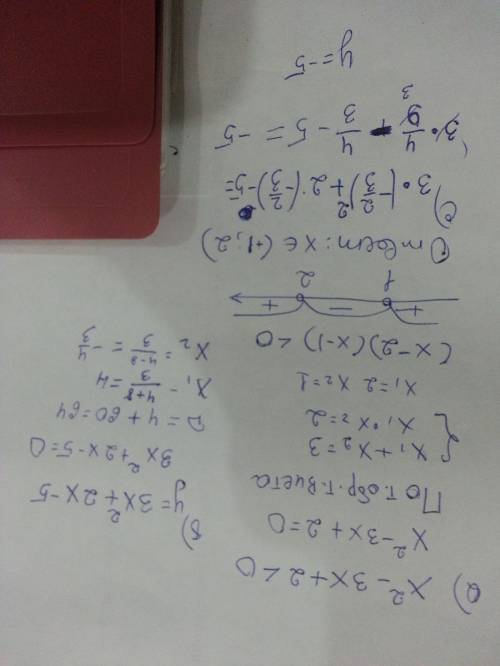 а) x² - 3x + 2 < 0
x² - 3x + 2 = 0
По т. обр. т. Виета
{ x₁ + x₂ = 3
x₁ · x₂ = 2
x₁ = 2 x₂ = 1
(x - 2)(x - 1) < 0
+ 1 - 2 +
Ответ: x ∈ (+1; 2)
б) y = 3x² + 2x - 5
3x² + 2x - 5 = 0
D = 4 + 60 = 64
x₁ - 4+8/3 = 4
x₂ = 4-8/3 = - 4/3
с) 3 · (-2/3)² + 2 · (-2/3) - 5 =
3 · 4/9 - 4/3 - 5 = -5
3
y = -5